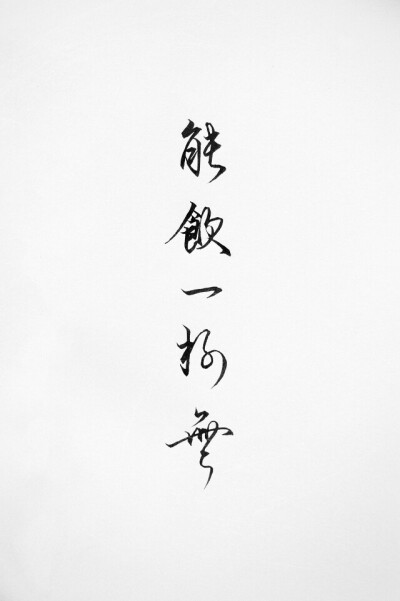 能飲一杯無